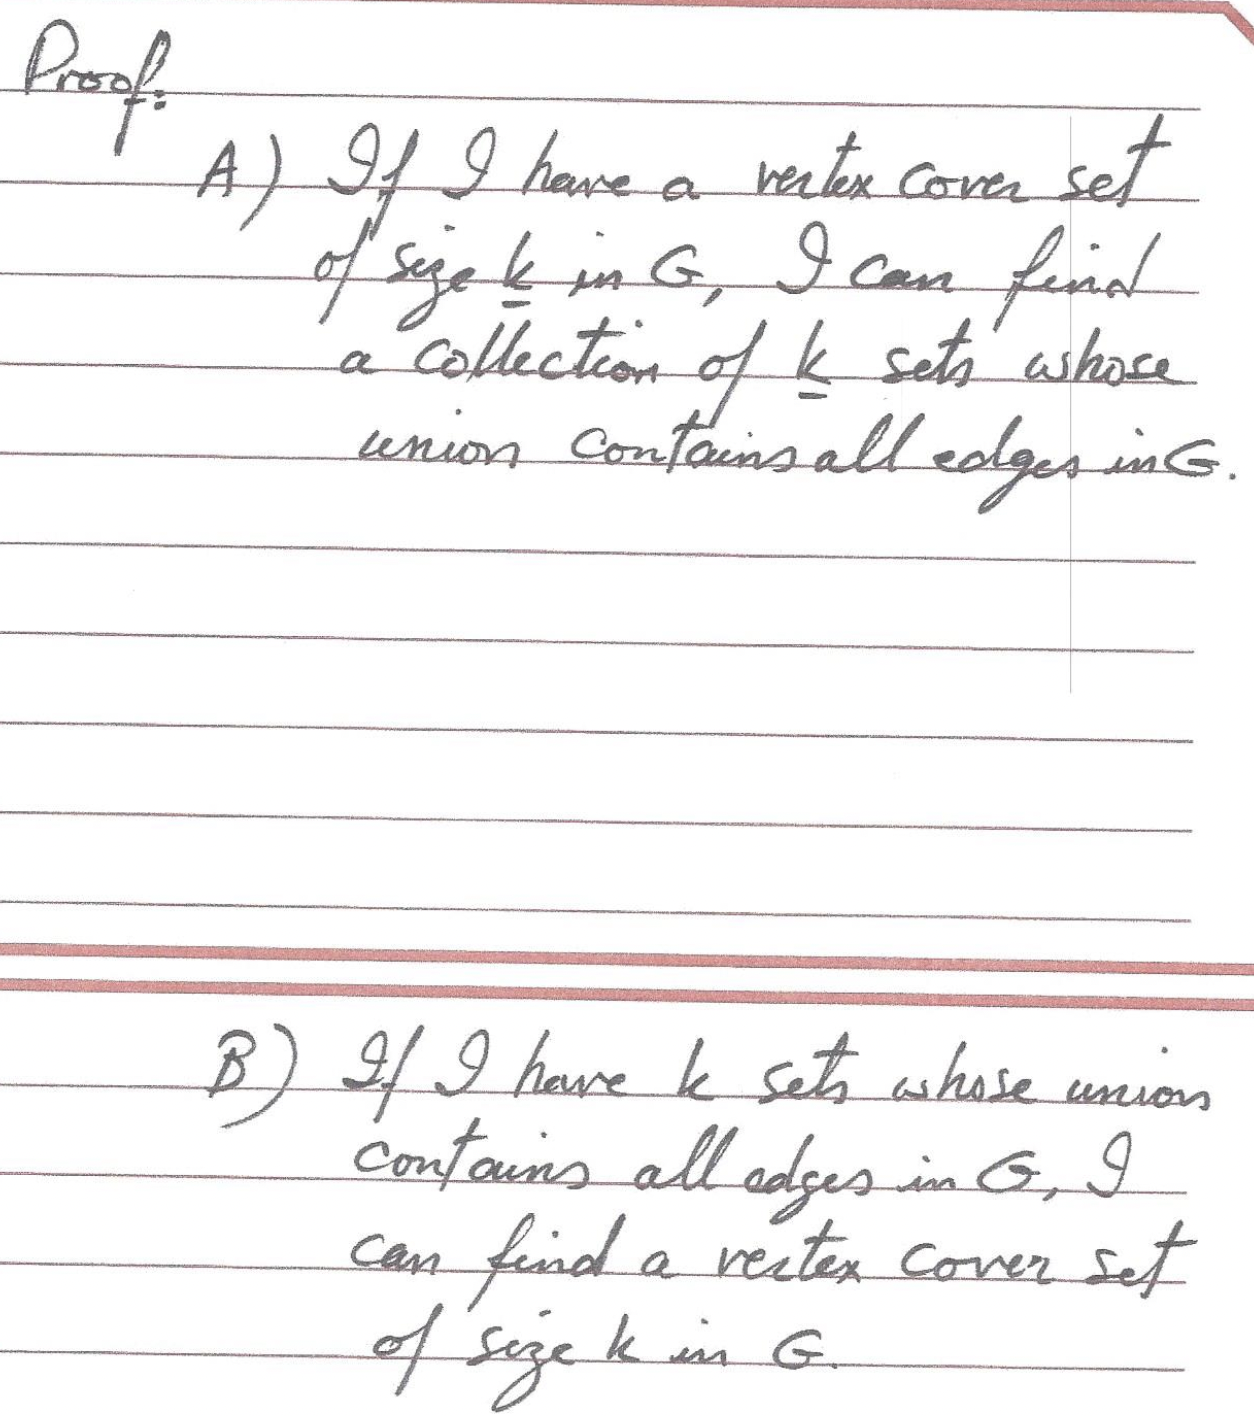 Proof:
A) If I have a vertex cover set
of size k in G, I can find
a collection of k sets whose
union contains all edges in G.
B) If I have k sets whose union
contains all edges in G, I
can find a vertex cover set
of size k in G.